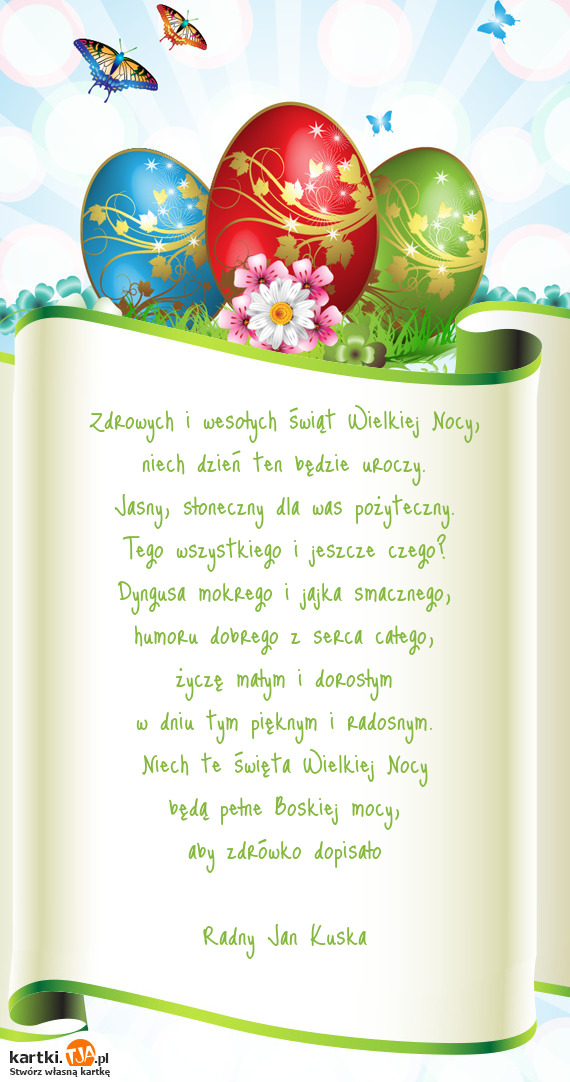 Zdrowych i wesołych świąt Wielkiej Nocy,
niech dzień ten będzie uroczy.
Jasny, słoneczny dla was pożyteczny.
Tego wszystkiego i jeszcze czego?
Dyngusa mokrego i jajka smacznego,
humoru dobrego z serca całego,
życzę małym i dorosłym
w dniu tym pięknym i radosnym.
Niech te święta Wielkiej Nocy
będą pełne Boskiej mocy,
aby zdrówko dopisało
Radny Jan Kuska
kartki.TJA.pl
Stwórz własną kartkę